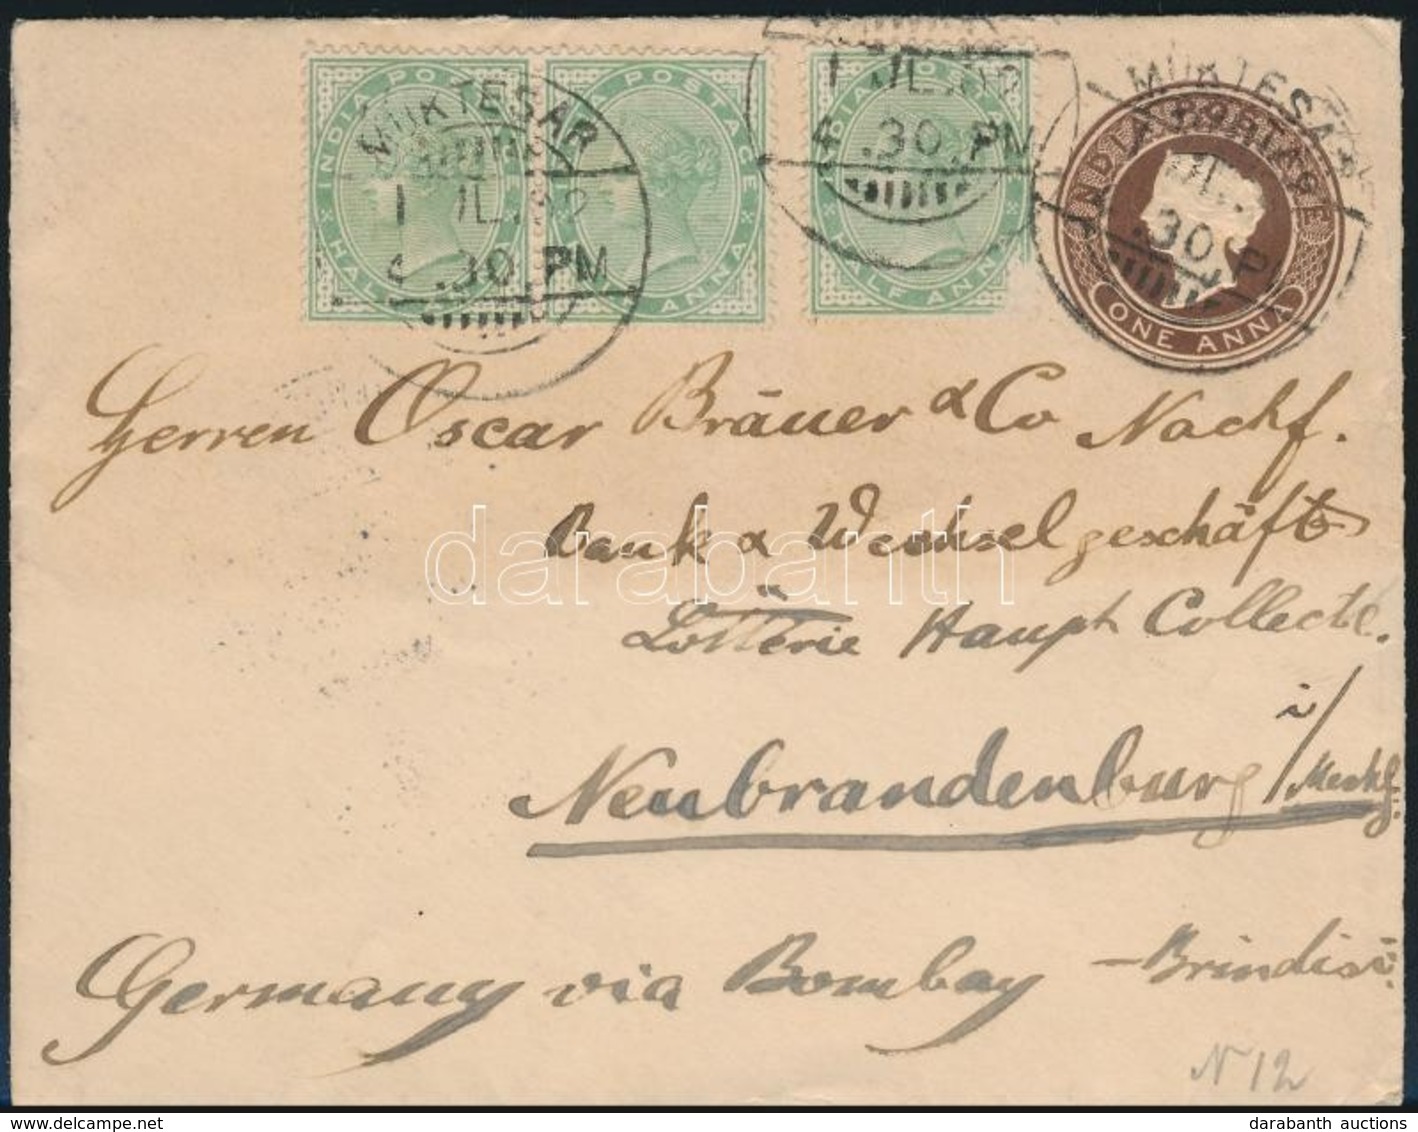 INDIA POSTAGE
HALF ANNA
MUKTESAR
1 JL.02
4.30 PM
INDIA POSTAGE
HALF ANNA
INDIA POSTAGE
HALF ANNA
1 JL.02
4.30 PM
INDIA POSTAGE
ONE ANNA
MUKTESAR
Herren Oscar Bräuer & Co Nachf.
Bank & Wechselgeschäft
Lotterie Haupt Collecte.
Neubrandenburg i/Meckl.
Germany via Bombay – Brindisi
N 12
darabanth
darabanth auctions